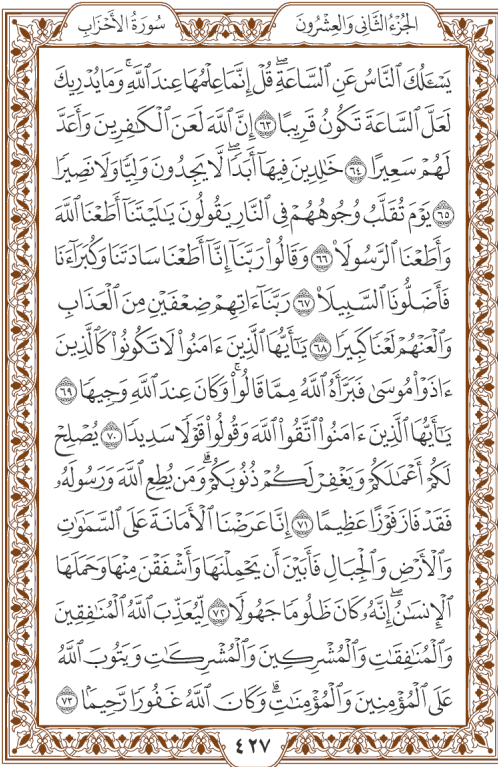 الجُزْءُ الثَّانِي وَالعِشْرُونَ
سُورَةُ الأَحْزَابِ
يَسْـَٔلُكَ ٱلنَّاسُ عَنِ ٱلسَّاعَةِۖ قُلْ إِنَّمَا عِلْمُهَا عِندَ ٱللَّهِۚ وَمَا يُدْرِيكَ
لَعَلَّ ٱلسَّاعَةَ تَكُونُ قَرِيبًا ٦٣ إِنَّ ٱللَّهَ لَعَنَ ٱلْكَٰفِرِينَ وَأَعَدَّ
لَهُمْ سَعِيرًا ٦٤ خَٰلِدِينَ فِيهَآ أَبَدًاۖ لَّا يَجِدُونَ وَلِيًّا وَلَا نَصِيرًا
٦٥ يَوْمَ تُقَلَّبُ وُجُوهُهُمْ فِي ٱلنَّارِ يَقُولُونَ يَٰلَيْتَنَآ أَطَعْنَا ٱللَّهَ
وَأَطَعْنَا ٱلرَّسُولَا۠ ٦٦ وَقَالُوا۟ رَبَّنَآ إِنَّآ أَطَعْنَا سَادَتَنَا وَكُبَرَآءَنَا
فَأَضَلُّونَا ٱلسَّبِيلَا۠ ٦٧ رَبَّنَآ ءَاتِهِمْ ضِعْفَيْنِ مِنَ ٱلْعَذَابِ
وَٱلْعَنْهُمْ لَعْنًا كَبِيرًا ٦٨ يَٰٓأَيُّهَا ٱلَّذِينَ ءَامَنُوا۟ لَا تَكُونُوا۟ كَٱلَّذِينَ
ءَاذَوْا۟ مُوسَىٰ فَبَرَّأَهُ ٱللَّهُ مِمَّا قَالُوا۟ۚ وَكَانَ عِندَ ٱللَّهِ وَجِيهًا ٦٩
يَٰٓأَيُّهَا ٱلَّذِينَ ءَامَنُوا۟ ٱتَّقُوا۟ ٱللَّهَ وَقُولُوا۟ قَوْلًا سَدِيدًا ٧٠ يُصْلِحْ
لَكُمْ أَعْمَٰلَكُمْ وَيَغْفِرْ لَكُمْ ذُنُوبَكُمْۗ وَمَن يُطِعِ ٱللَّهَ وَرَسُولَهُۥ
فَقَدْ فَازَ فَوْزًا عَظِيمًا ٧١ إِنَّا عَرَضْنَا ٱلْأَمَانَةَ عَلَى ٱلسَّمَٰوَٰتِ
وَٱلْأَرْضِ وَٱلْجِبَالِ فَأَبَيْنَ أَن يَحْمِلْنَهَا وَأَشْفَقْنَ مِنْهَا وَحَمَلَهَا
ٱلْإِنسَٰنُۖ إِنَّهُۥ كَانَ ظَلُومًا جَهُولًا ٧٢ لِّيُعَذِّبَ ٱللَّهُ ٱلْمُنَٰفِقِينَ
وَٱلْمُنَٰفِقَٰتِ وَٱلْمُشْرِكِينَ وَٱلْمُشْرِكَٰتِ وَيَتُوبَ ٱللَّهُ
عَلَى ٱلْمُؤْمِنِينَ وَٱلْمُؤْمِنَٰتِۗ وَكَانَ ٱللَّهُ غَفُورًا رَّحِيمًۢا ٧٣
٤٢٧